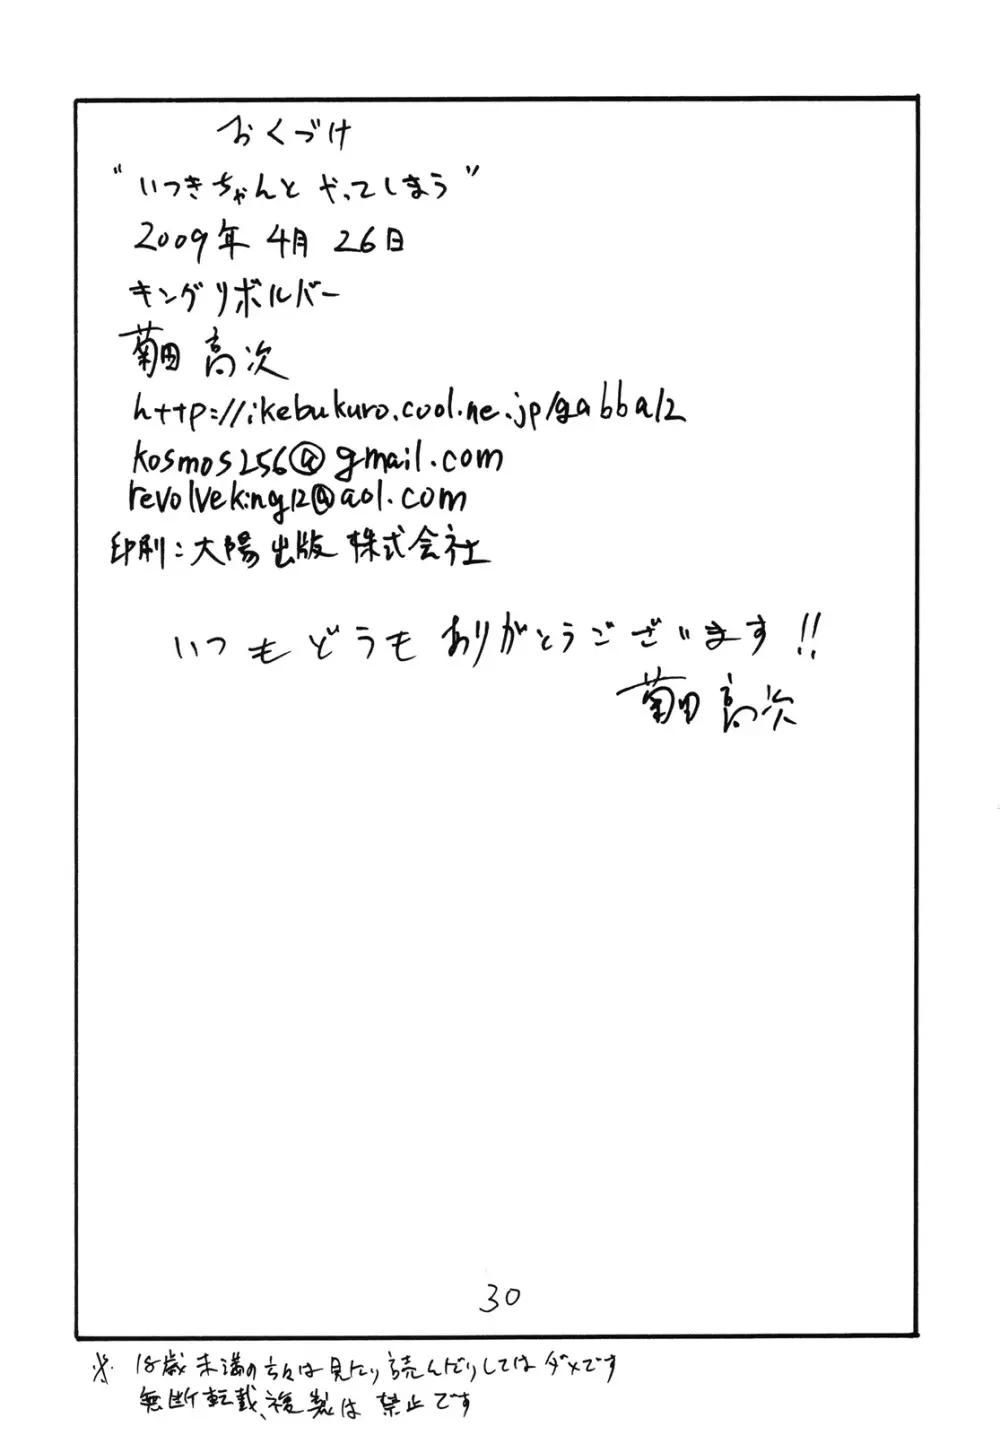 おくづけ
"いつきちゃんとやってしまう"
2009年 4月 26日
キングリボルバー
菊田 高次
http://ikebukuro.cool.ne.jp/gabba12
kosmos256@gmail.com
revolveking12@aol.com
印刷：大陽出版株式会社
いつもどうもありがとうございます!!
菊田 高次
30
※ 18歳未満の方々は見たり読んだりしてはダメです
無断転載、複製は禁止です